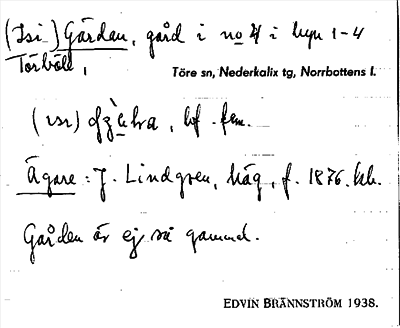 (Isi) Gärdan, gård i no 4 i byn 1-4
Törböle,
Töre sn, Nederkalix tg, Norrbottens l.
bf. fem.
Ägare: J. Lindgren, häg, f. 1876.
Gården är ej så gammal.
EDVIN BRÄNNSTRÖM 1938.